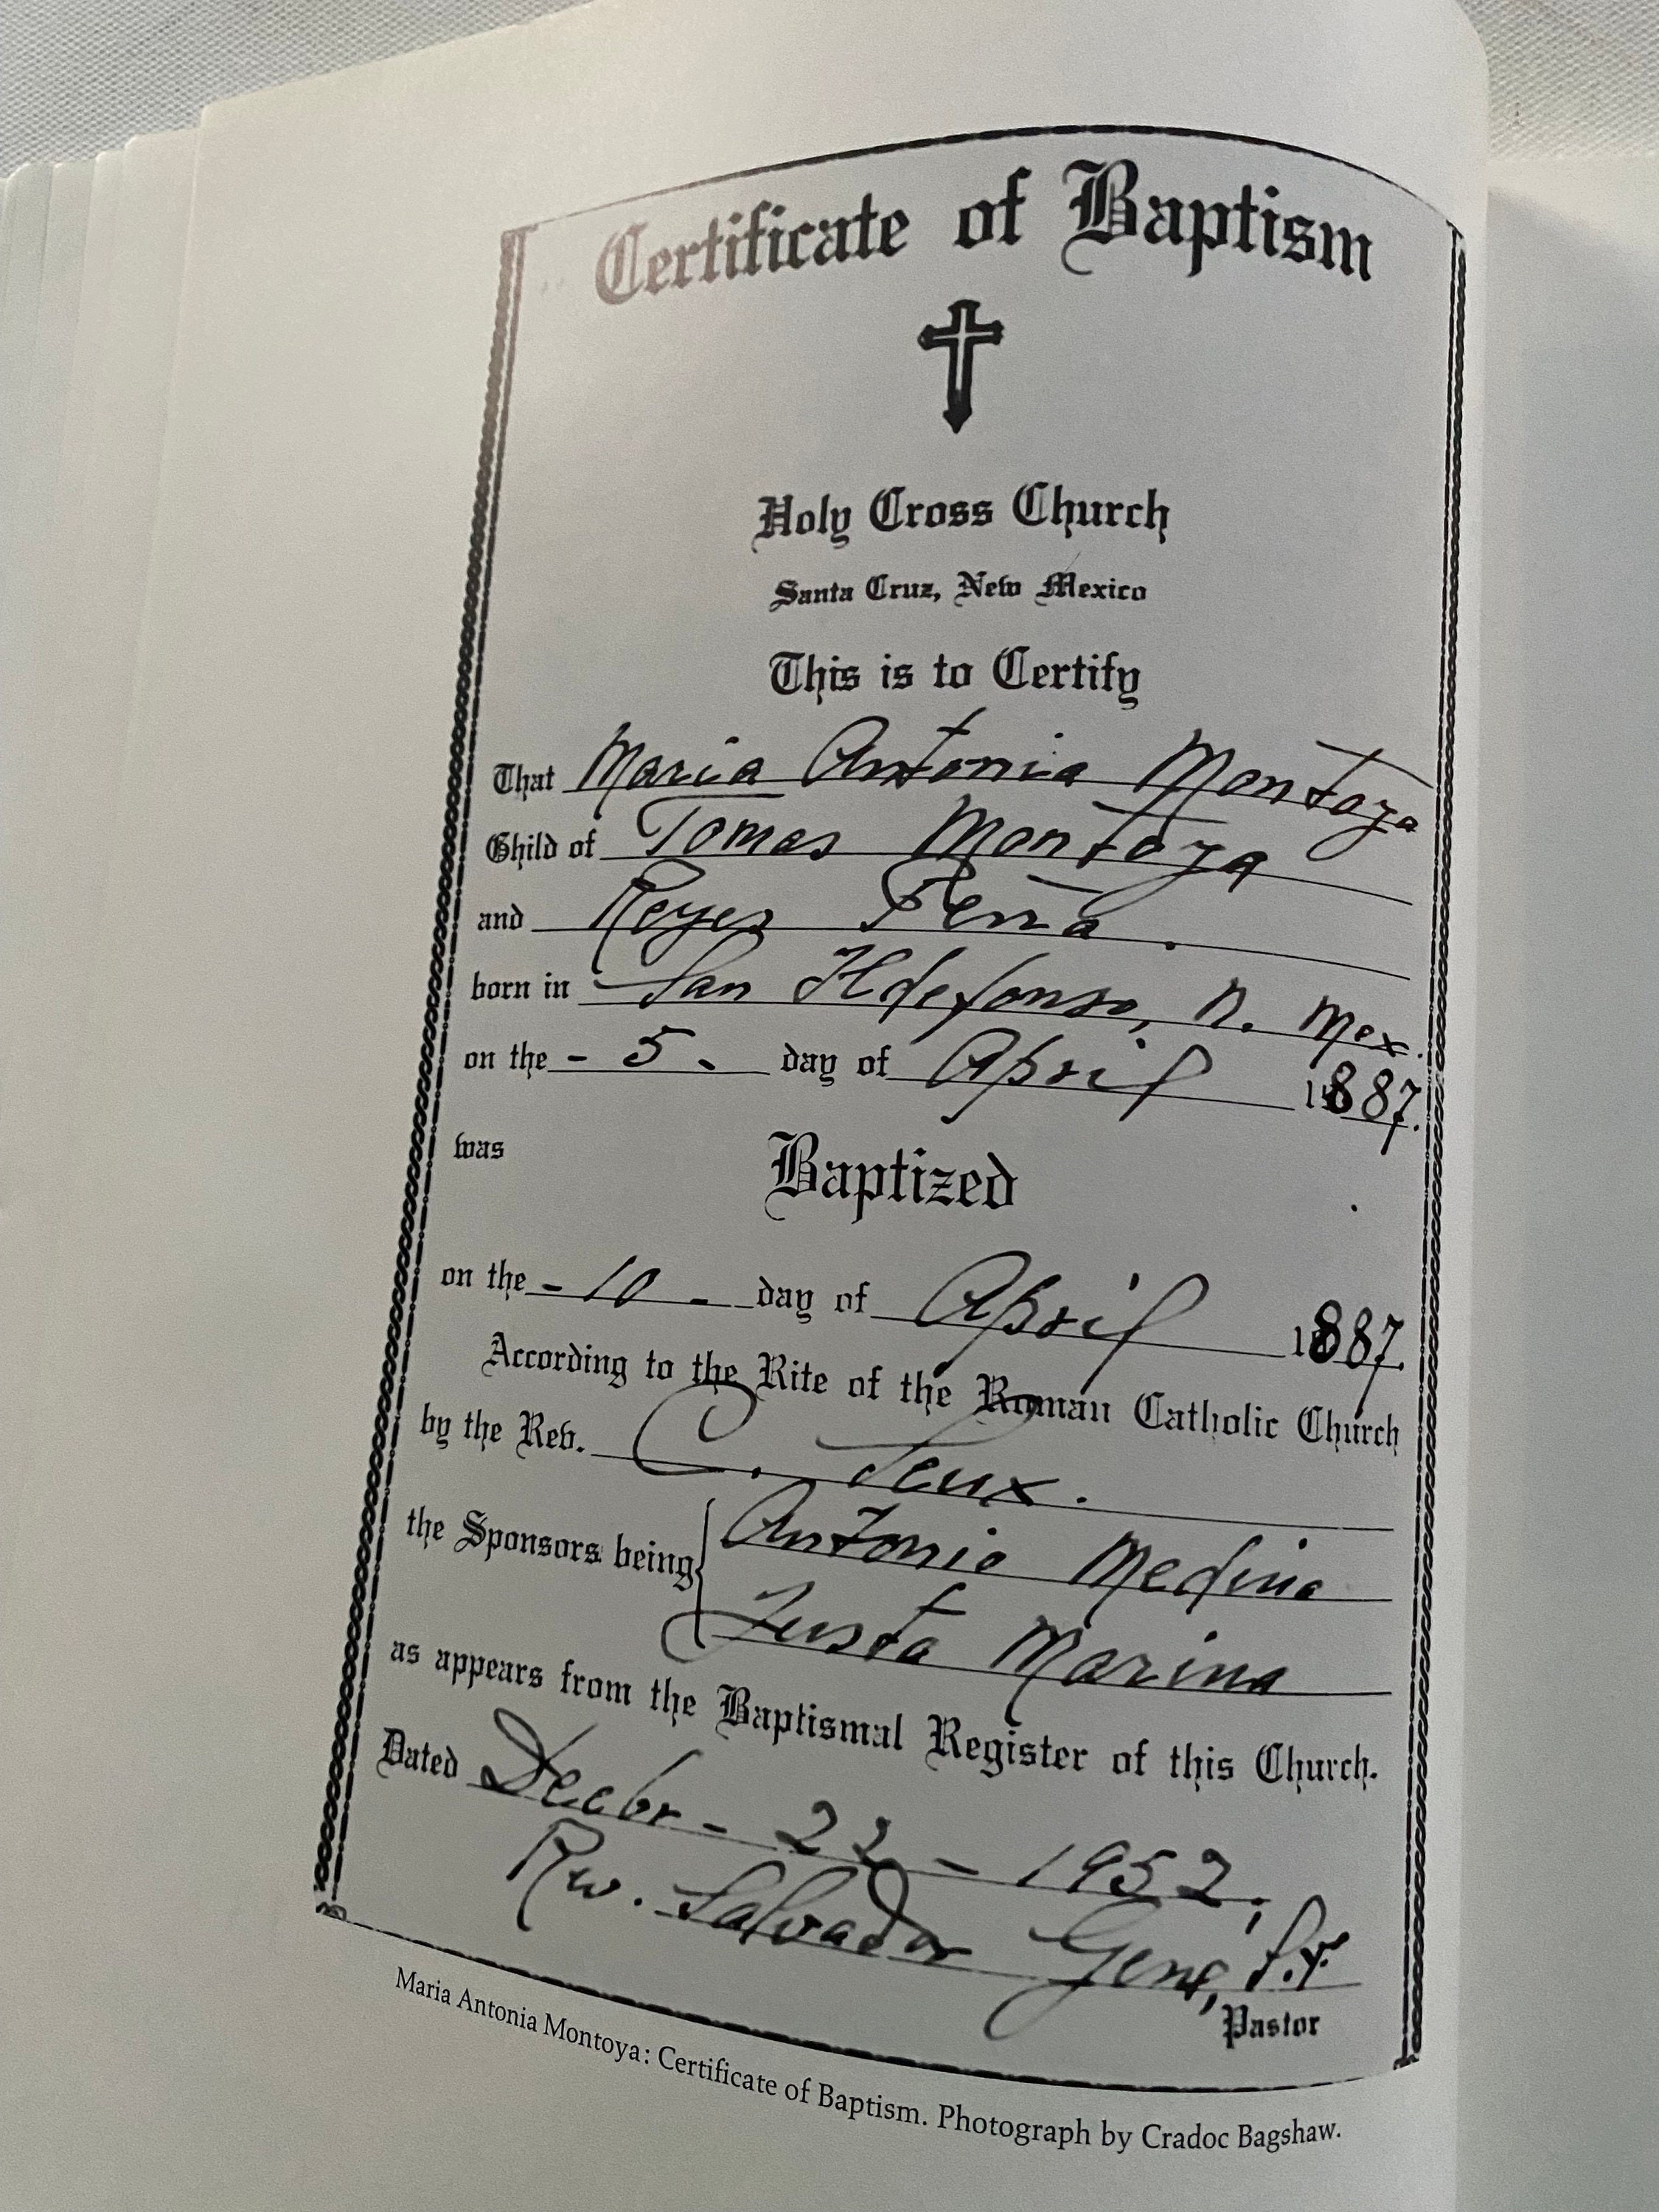 Certificate of Baptism
Holy Cross Church
Santa Cruz, New Mexico
This is to Certify
That Maria Antonia Montoya
Child of Tomas Montoya
and Reyes Peña.
born in San Ildefonso, N. Mex.
on the - 5 - day of April 1887.
was Baptized
on the - 10 - day of April 1887.
According to the Rite of the Roman Catholic Church
by the Rev. C. Seux.
the Sponsors being Antonio Medina
Justa Marina
as appears from the Baptismal Register of this Church.
Dated Decbr - 22 - 1952,
Rev. Salvador Gene,
Pastor
Maria Antonia Montoya: Certificate of Baptism. Photograph by Cradoc Bagshaw.